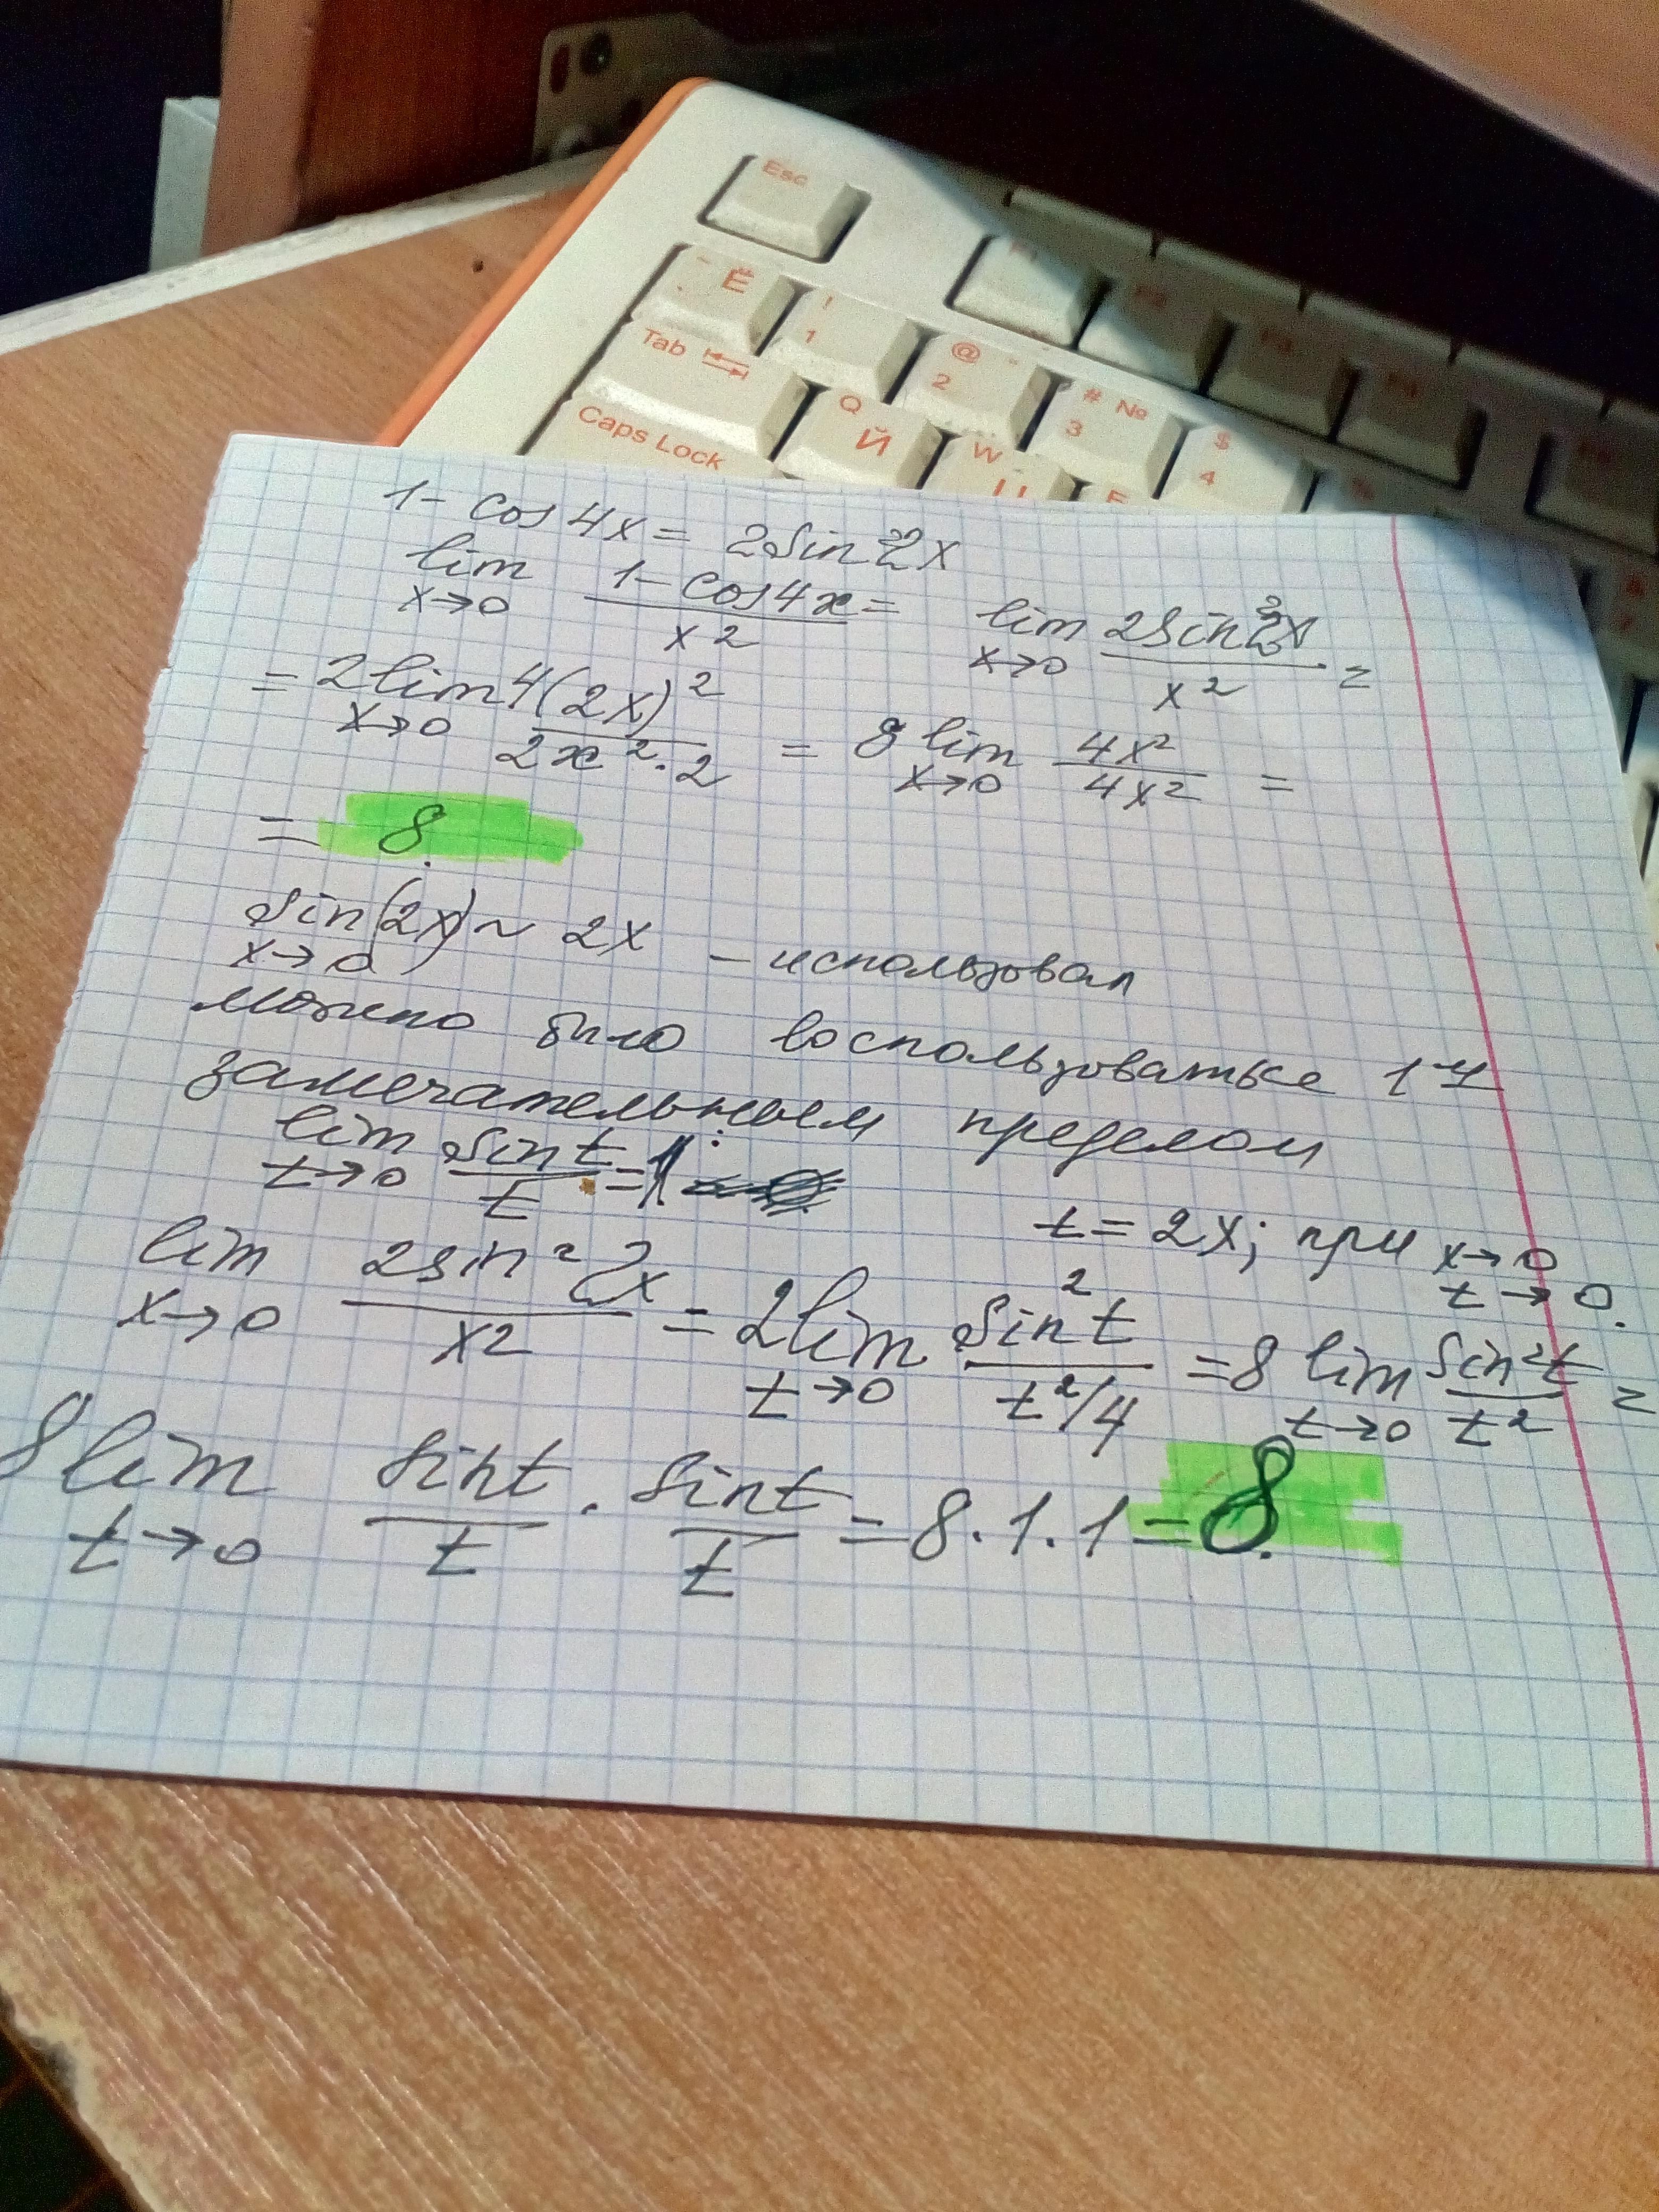 Esc
Ё ! 1 @ 2 # № 3 $ 4
Tab Q Й W Ц E
Caps Lock
1 - cos 4x = 2 sin²2x
lim x→0 (1 - cos 4x)/x² = lim x→0 2sin²2x/x² =
= 2 lim x→0 4(2x)²/(2x²·2) = 8 lim x→0 4x²/4x² =
= 8.
sin(2x) ~ 2x x→0 – использовал
можно было воспользоваться 1ым
замечательным пределом
lim t→0 sin t/t = 1.
t = 2x; при x→0 t→0.
lim x→0 2sin²2x/x² = 2 lim t→0 sin²t/(t²/4) = 8 lim t→0 sin²t/t² =
8 lim t→0 sin t/t · sin t/t = 8·1·1 = 8.